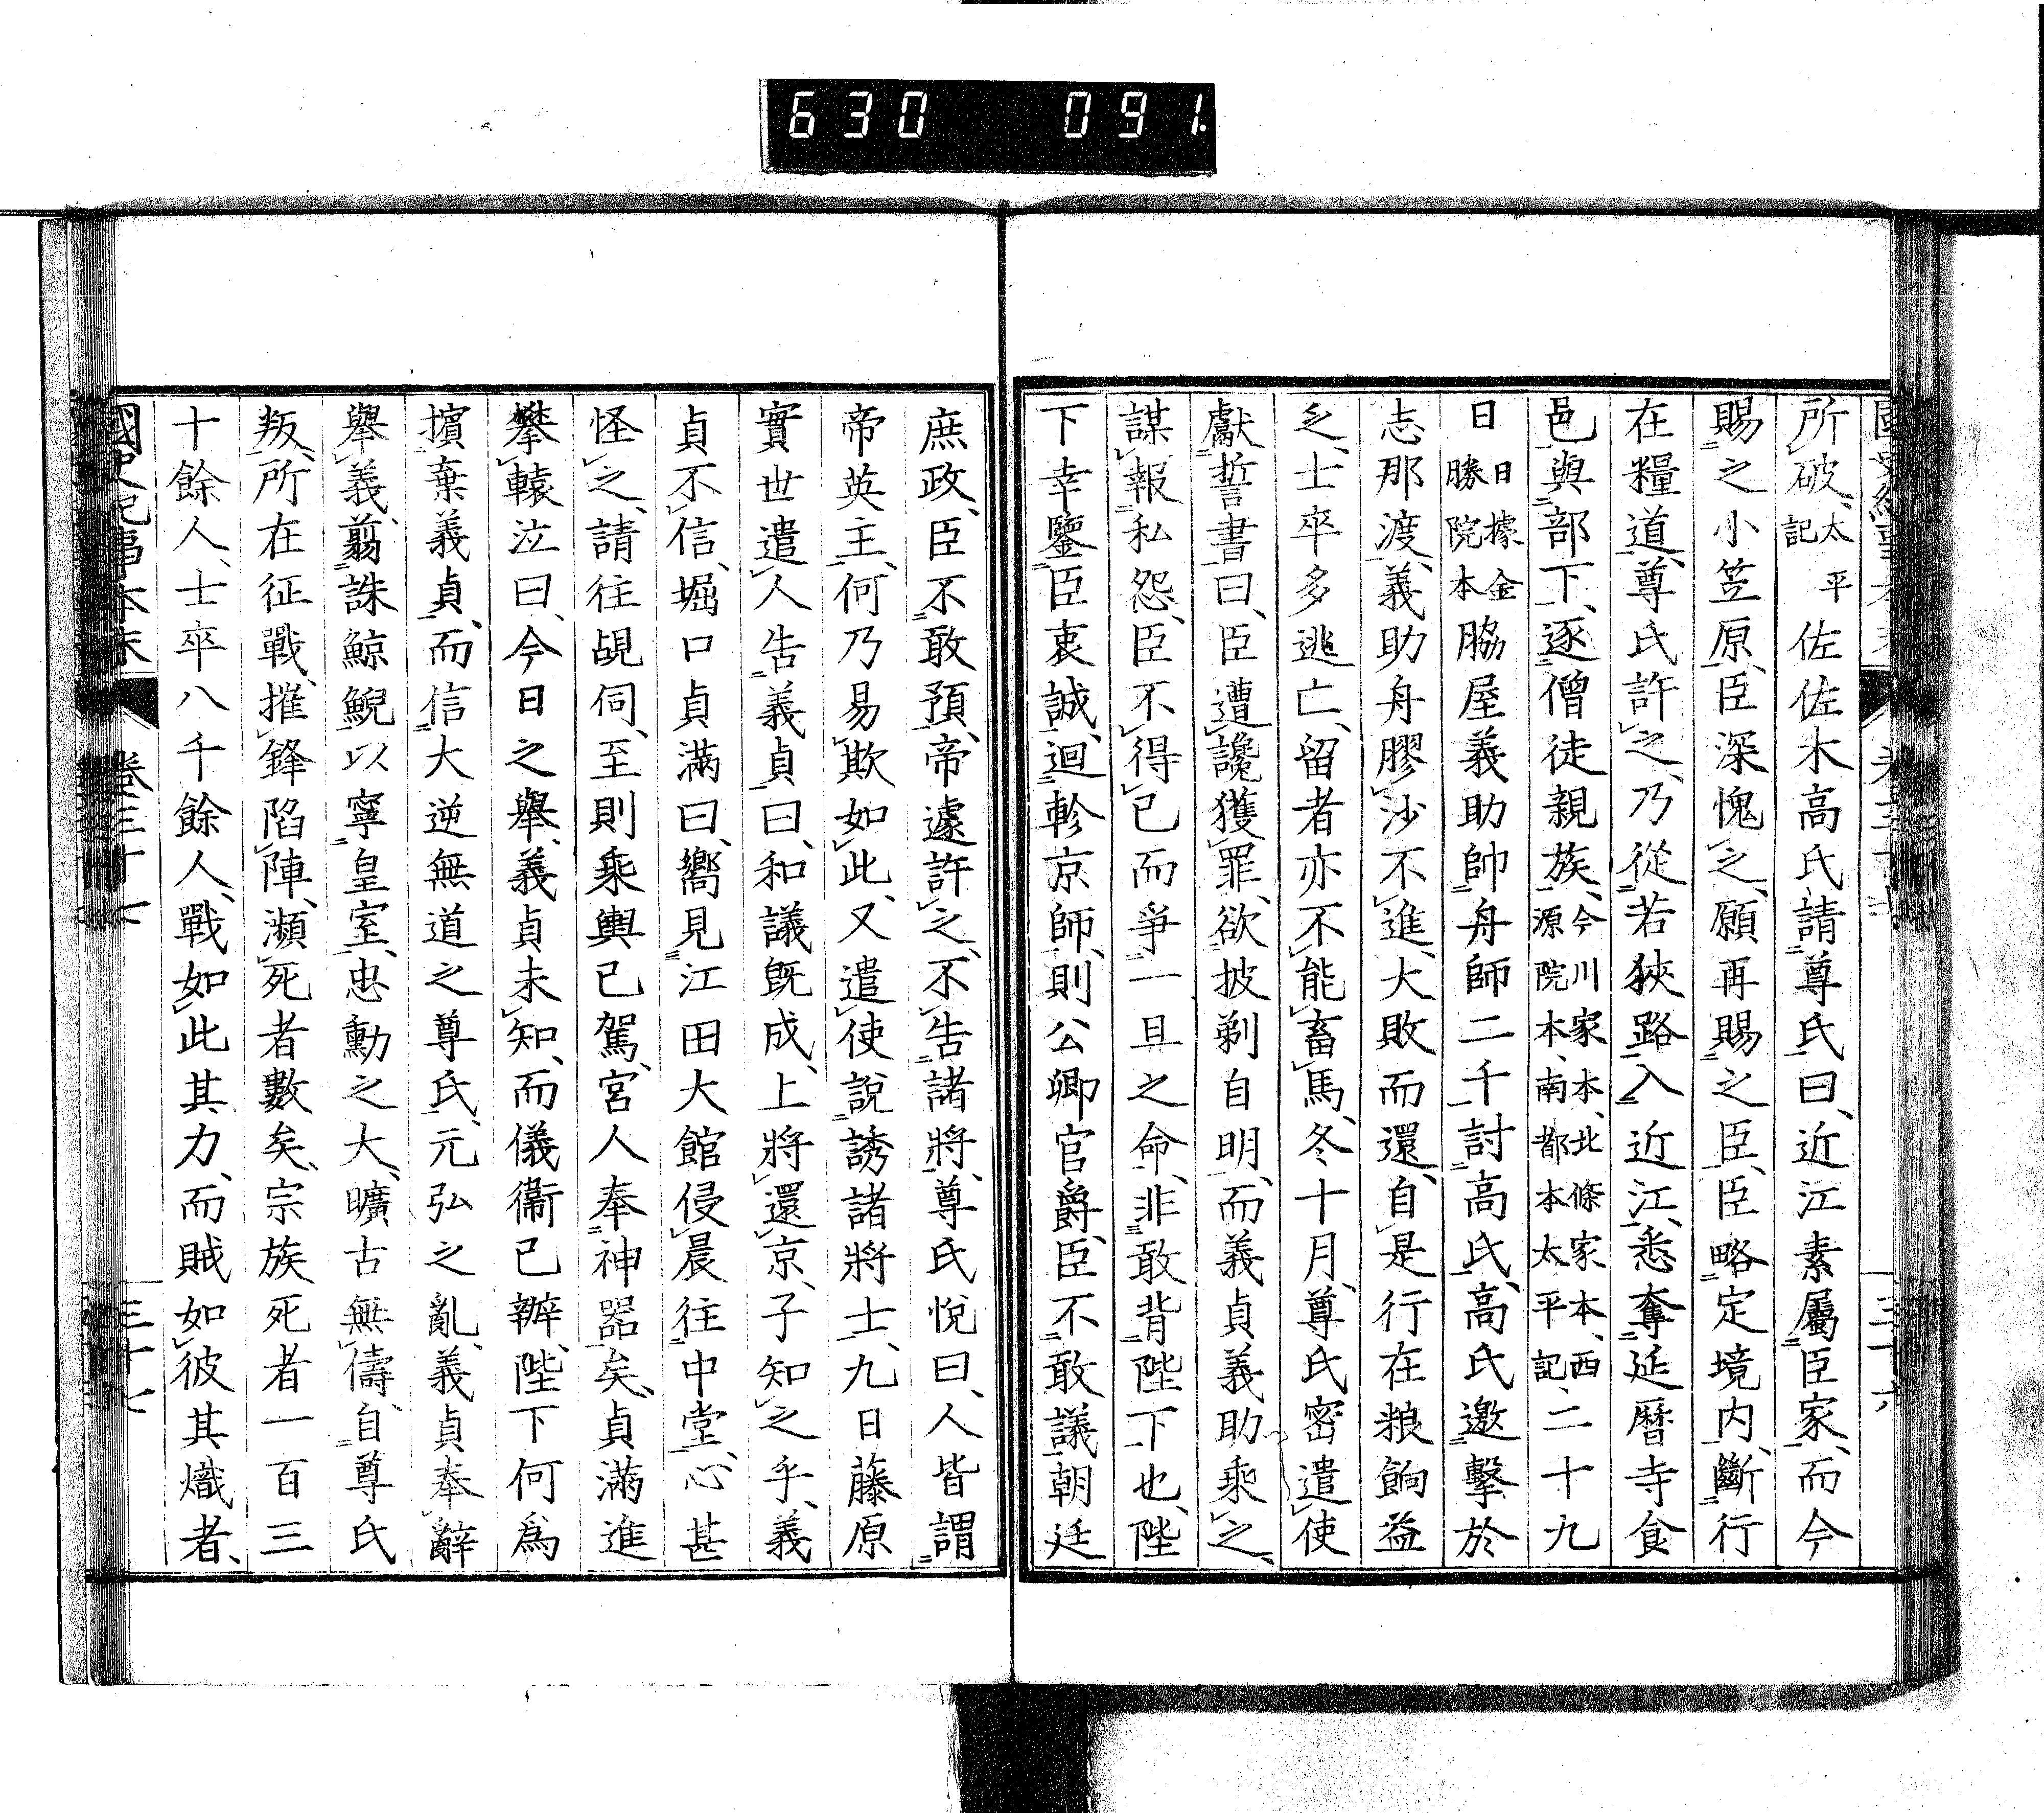 630 091.
所破、太平記佐佐木高氏請尊氏曰、近江素屬臣家、而今
賜之小笠原、臣深愧之、願再賜之臣、臣略定境內、斷行
在糧道、尊氏許之、乃從若狹路入近江、悉奪延曆寺食
邑、與部下、逐僧徒親族、今川家本、北條家本、西源院本、南都本太平記、二十九
日日據金勝院本脇屋義助帥舟師二千討高氏、高氏邀擊於
志那渡、義助舟膠沙不進、大敗而還、自是行在粮餉益
乏、士卒多逃亡、留者亦不能畜馬、冬十月、尊氏密遣使
獻誓書曰、臣遭讒獲罪、欲披剃自明、而義貞義助乘之、
謀報私怨、臣不得已而爭一旦之命、非敢背陛下也、陛
下幸鑒臣衷誠、迴軫京師、則公卿官爵、臣不敢議、朝廷
庶政、臣不敢預、帝遽許之、不告諸將、尊氏悅曰、人皆謂
帝英主、何乃易欺如此、又遣使說誘諸將士、九日藤原
實世遣人告義貞曰、和議既成、上將還京、子知之乎、義
貞不信、堀口貞滿曰、嚮見江田大館侵晨往中堂、心甚
怪之、請往覘伺、至則乘輿已駕、宮人奉神器矣、貞滿進
攀轅泣曰、今日之舉、義貞未知、而儀衞已辨、陛下何爲
擯棄義貞、而信大逆無道之尊氏、元弘之亂、義貞奉辭
舉義、翦誅鯨鯢以寧皇室、忠勳之大、曠古無儔、自尊氏
叛、所在征戰、摧鋒陷陣、瀕死者數矣、宗族死者一百三
十餘人、士卒八千餘人、戰如此其力、而賊如彼其熾者、
國史紀事本末 卷三十七 三十七